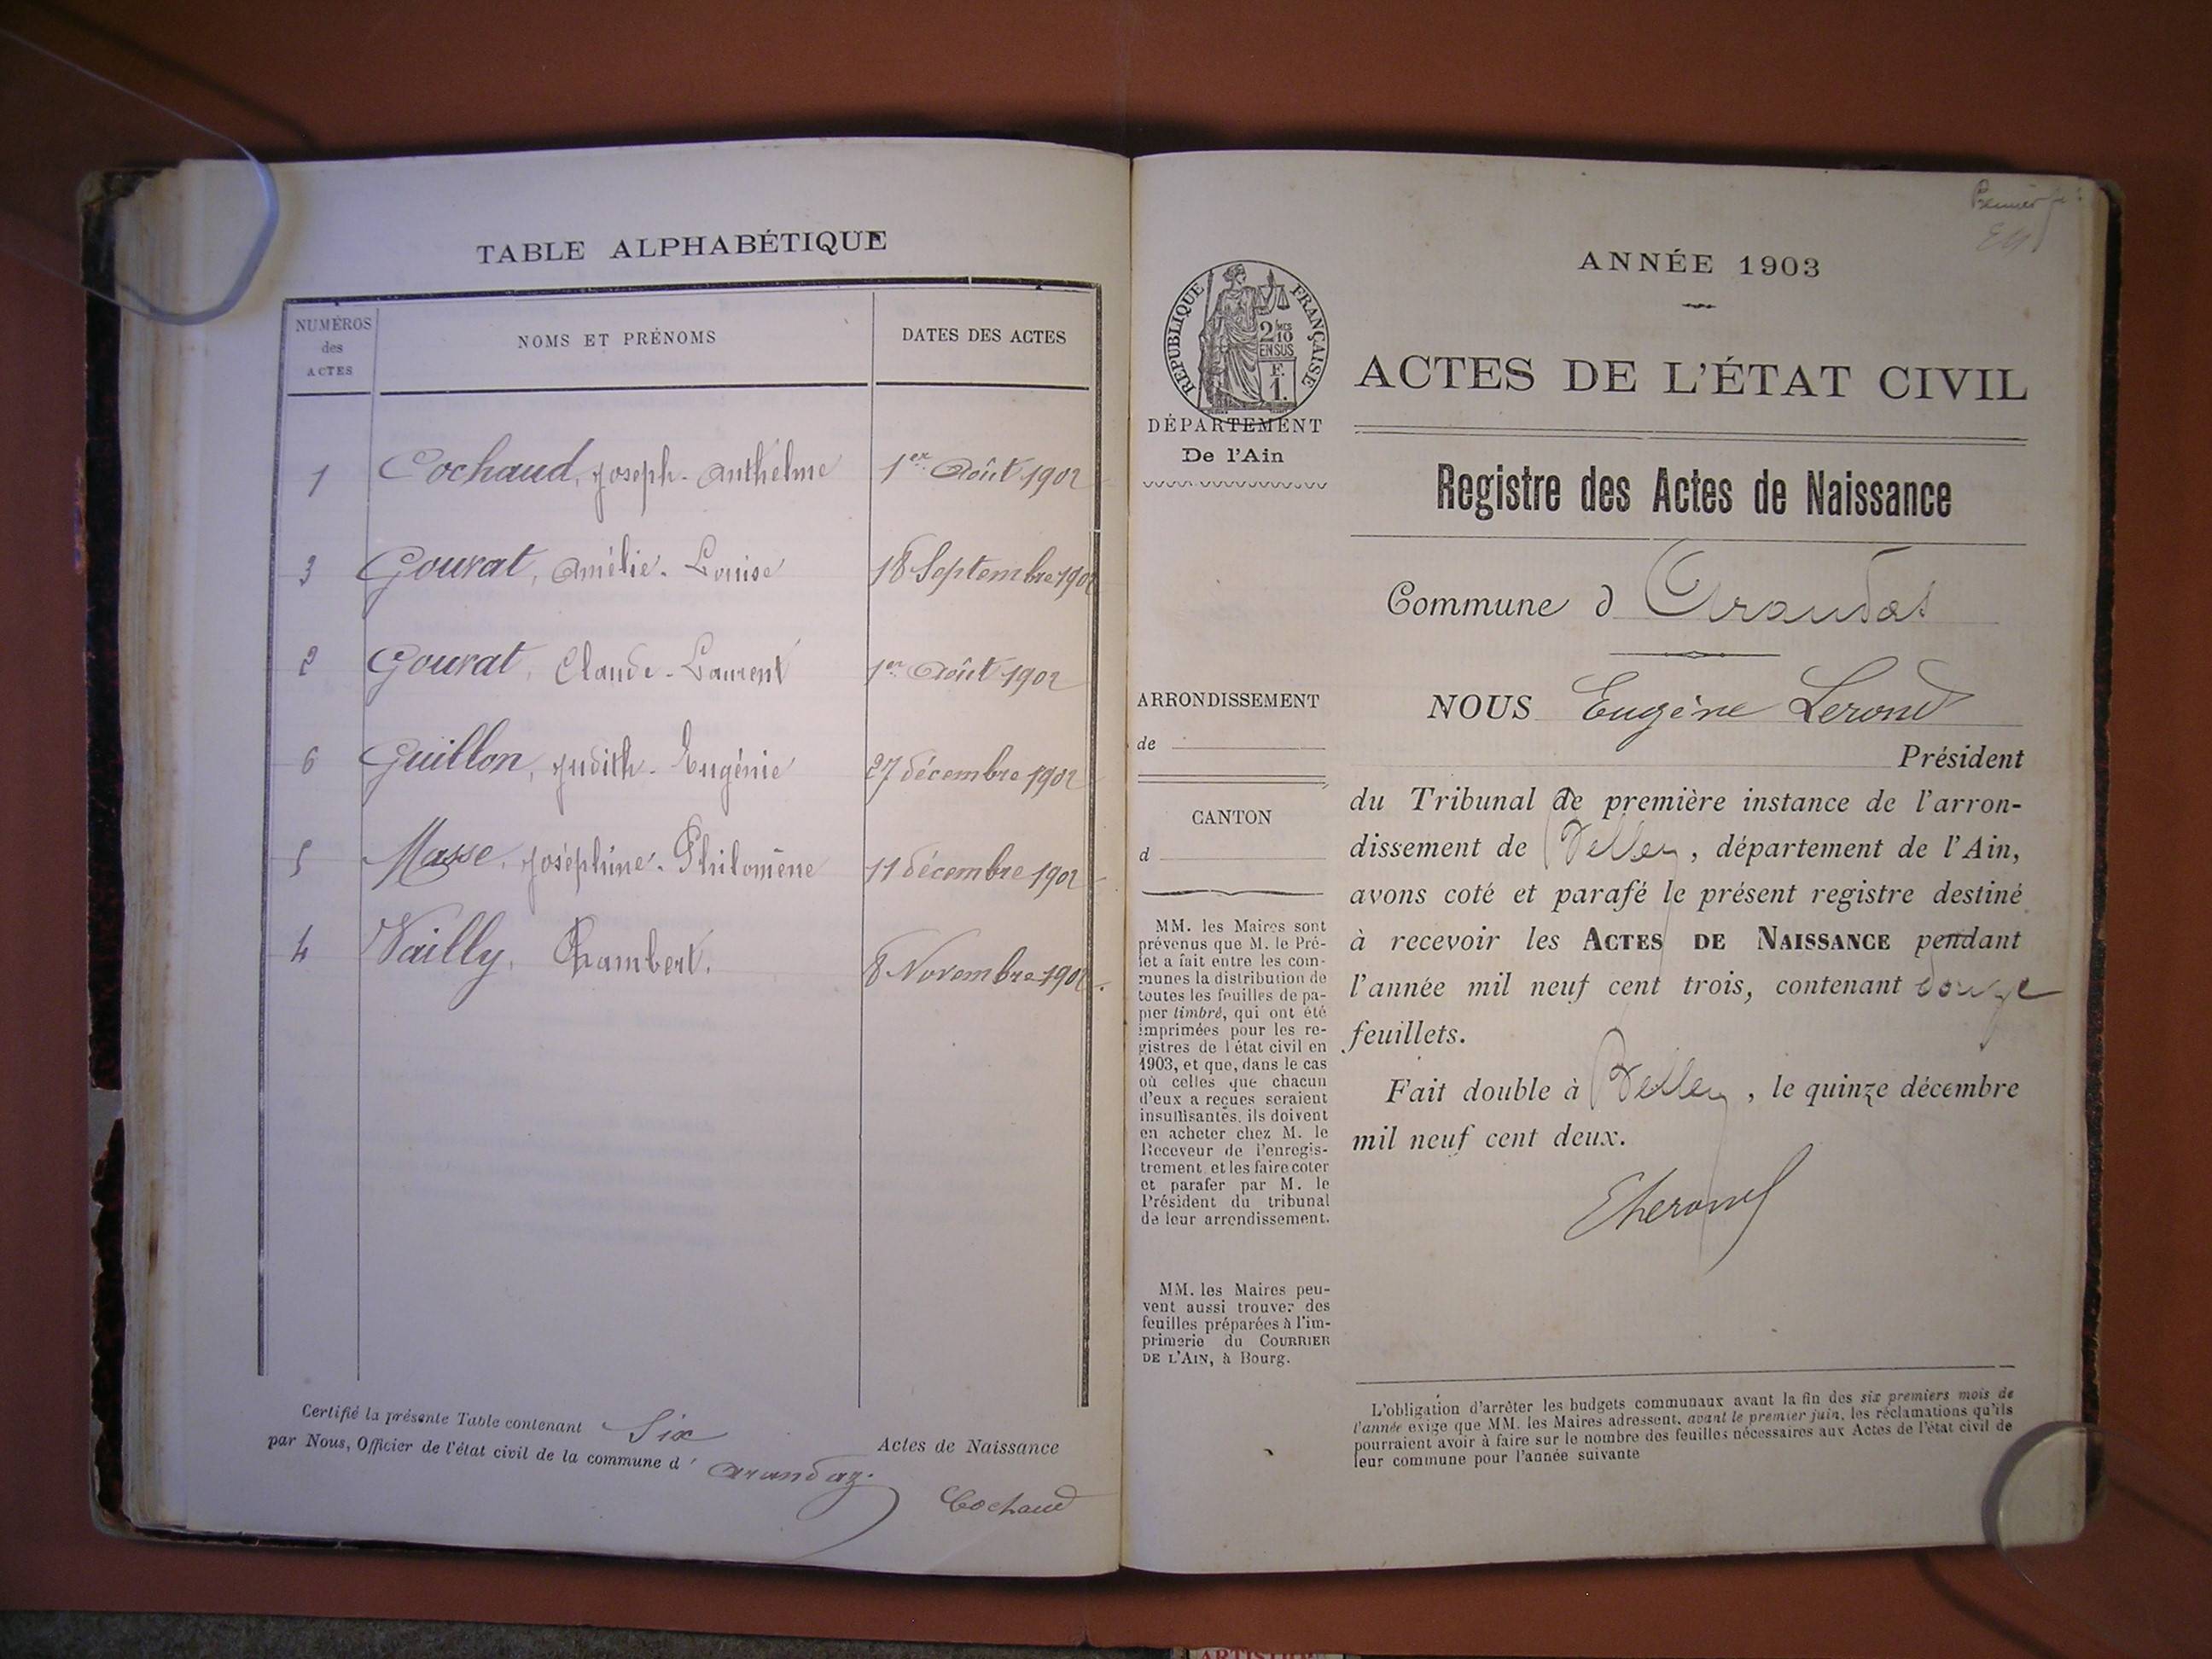 TABLE ALPHABÉTIQUE
NUMÉROS
des
ACTES
NOMS ET PRÉNOMS
DATES DES ACTES
1 Cochaud, Joseph-Anthelme 1er Août 1902
3 Gourat, Amélie-Louise 18 Septembre 1902
2 Gourat, Claude-Laurent 1er Août 1902
6 Guillon, Judith-Eugénie 27 décembre 1902
5 Masse, Joséphine-Philomène 11 décembre 1902
4 Vailly, Chambert. 8 Novembre 1902.
Certifié la présente Table contenant Six Actes de Naissance
par Nous, Officier de l'état civil de la commune d' Arandaz.
Cochaud
Premier
ANNÉE 1903
RÉPUBLIQUE FRANÇAISE
2 mes
10
EN SUS
F.
1.
DÉPARTEMENT
De l'Ain
ARRONDISSEMENT
de
CANTON
d
MM. les Maires sont
prévenus que M. le Pré-
fet a fait entre les com-
munes la distribution de
toutes les feuilles de pa-
pier timbré, qui ont été
imprimées pour les re-
gistres de l'état civil en
1903, et que, dans le cas
où celles que chacun
d'eux a reçues seraient
insuffisantes, ils doivent
en acheter chez M. le
Receveur de l'enregis-
trement et les faire coter
et parafer par M. le
Président du tribunal
de leur arrondissement.
MM. les Maires peu-
vent aussi trouver des
feuilles préparées à l'im-
primerie du COURRIER
DE L'AIN, à Bourg.
ACTES DE L'ÉTAT CIVIL
Registre des Actes de Naissance
Commune d Arandas
NOUS Eugène Lerond
Président
du Tribunal de première instance de l'arron-
dissement de Belley, département de l'Ain,
avons coté et parafé le présent registre destiné
à recevoir les ACTES DE NAISSANCE pendant
l'année mil neuf cent trois, contenant douze
feuillets.
Fait double à Belley, le quinze décembre
mil neuf cent deux.
ELerond
L'obligation d'arrêter les budgets communaux avant la fin des six premiers mois de
l'année exige que MM. les Maires adressent, avant le premier juin, les réclamations qu'ils
pourraient avoir à faire sur le nombre des feuilles nécessaires aux Actes de l'état civil de
leur commune pour l'année suivante